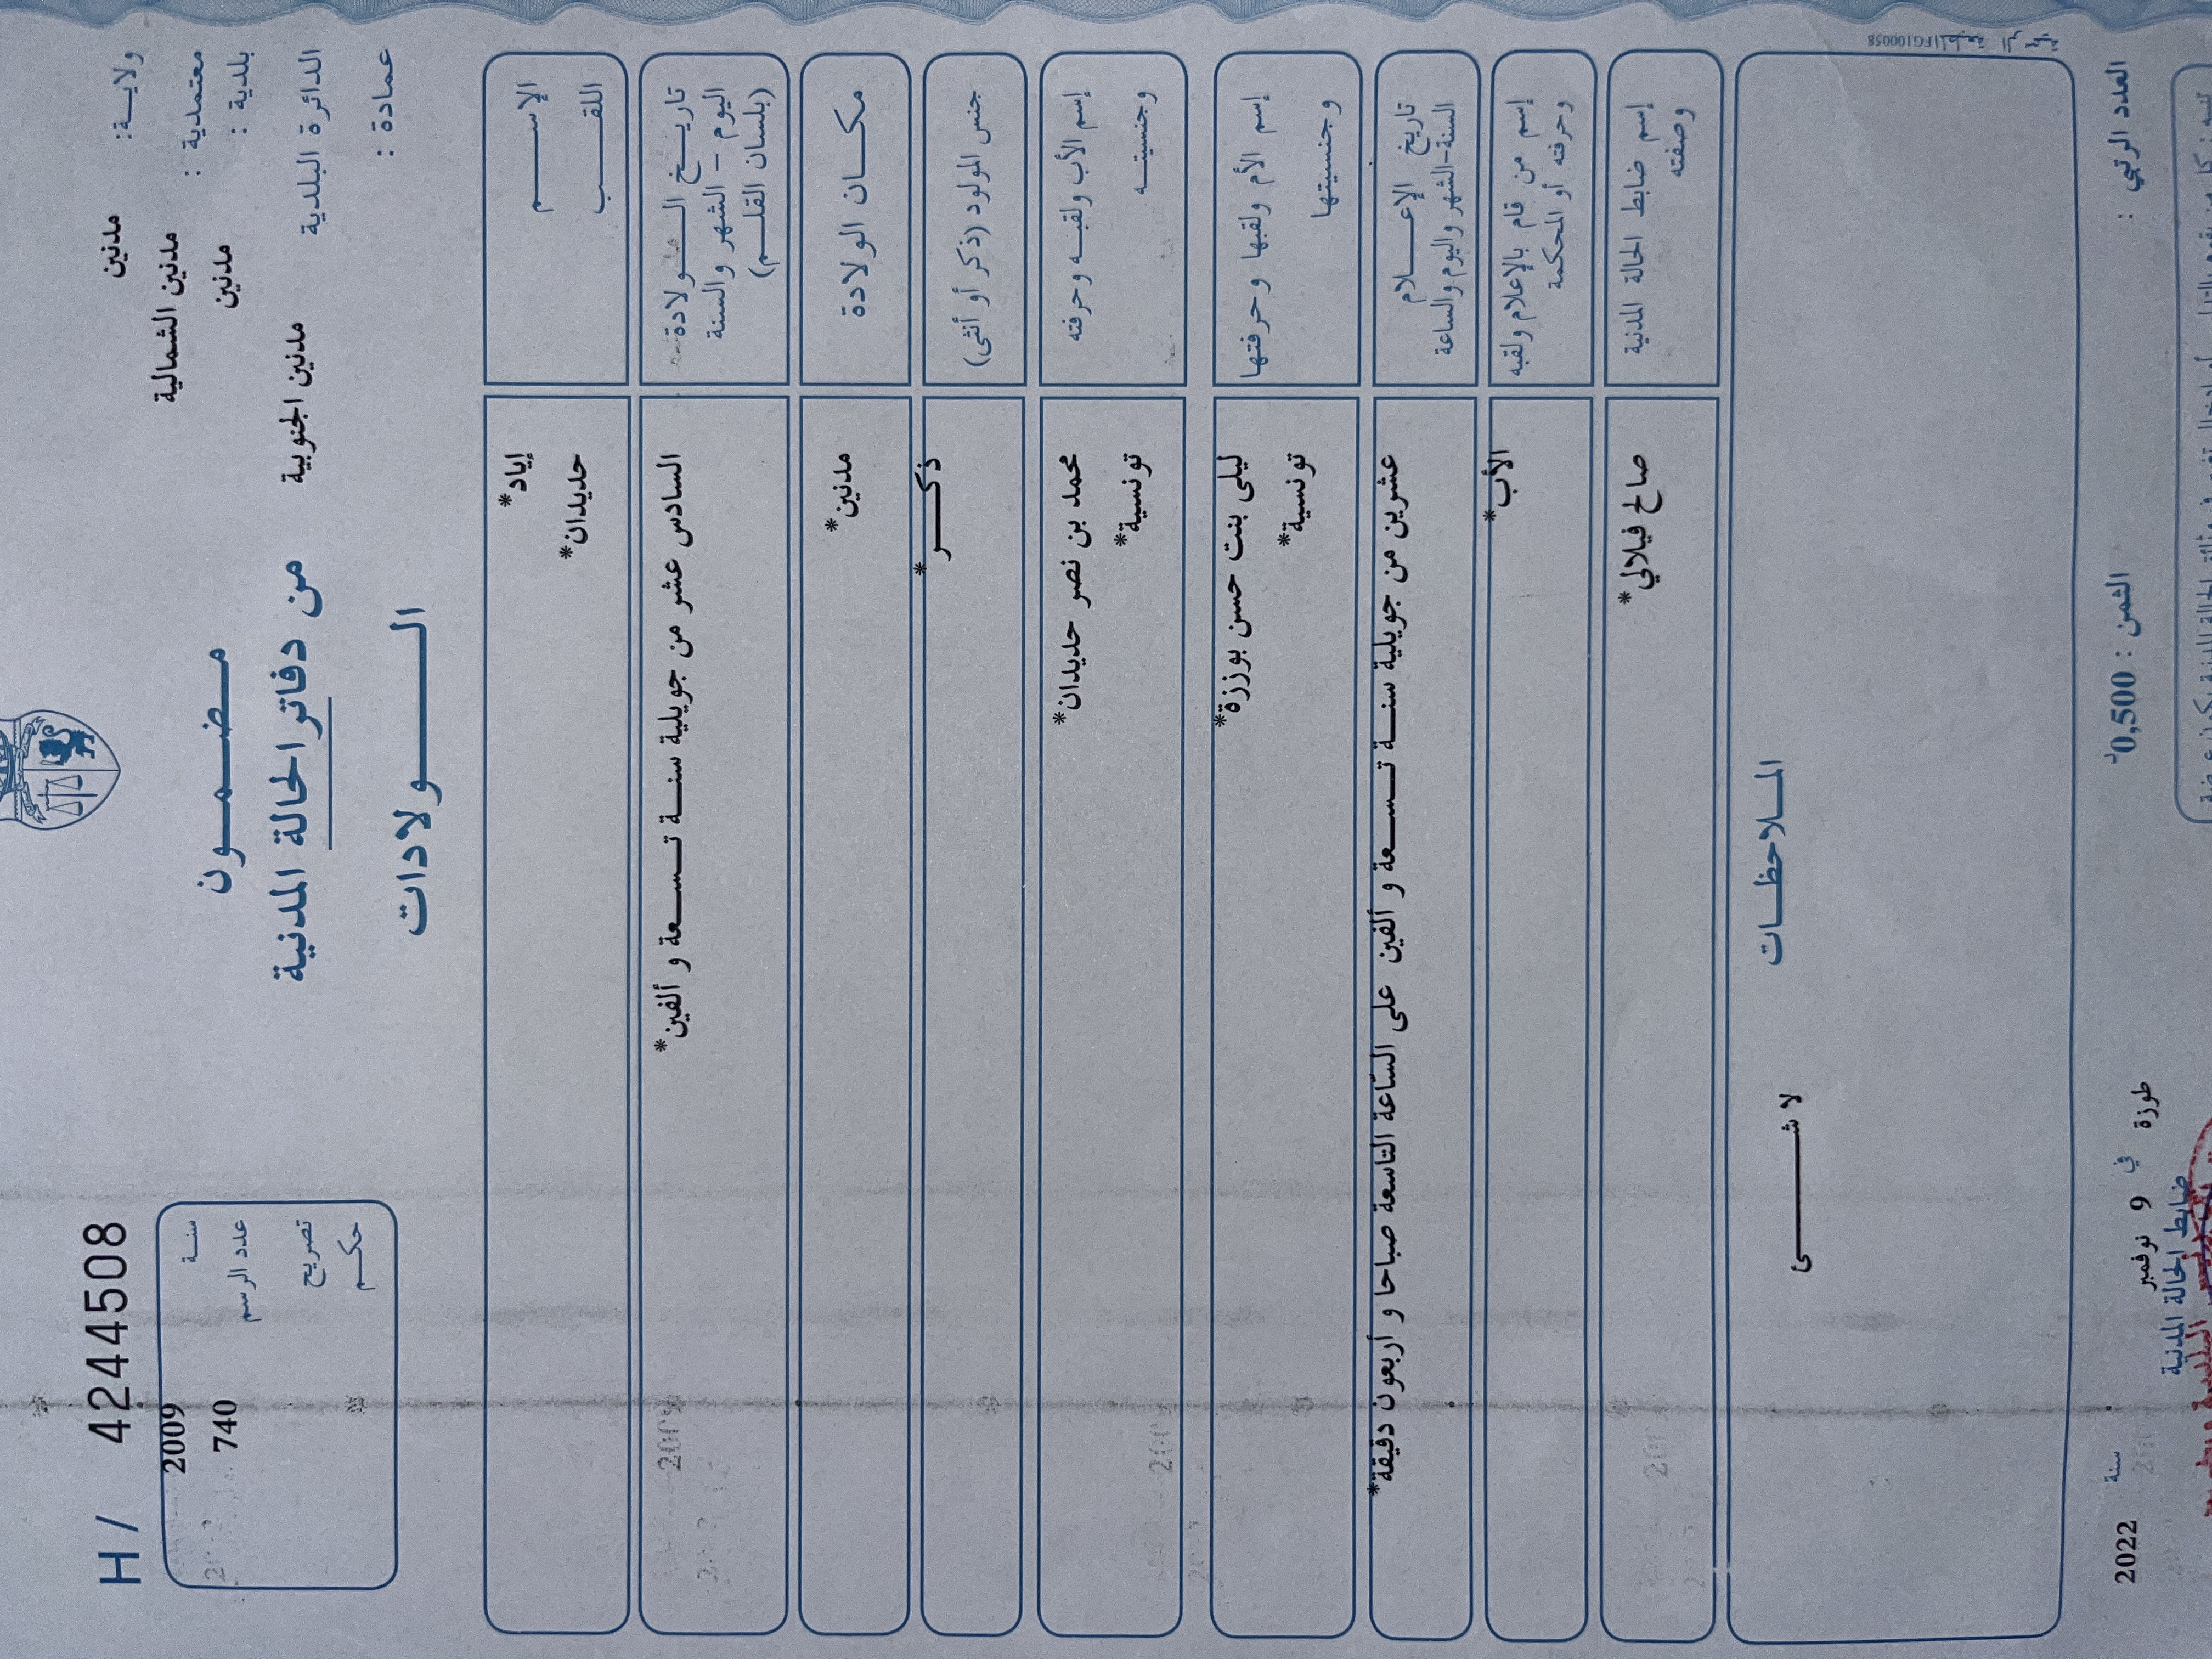 H / 4244508
ولايـــة: مدنين
معتمدية : مدنين الشمالية
بلدية : مدنين
الدائرة البلدية مدنين الجنوبية
عمادة :
مـضـمـون
من دفاتر الحالة المدنية
الـــولادات
سنـة 2009
عدد الرسم 740
تصريح
حكـم
الإســـم إياد*
اللقـــب حديدان*
تاريـخ الـــولادة
اليوم - الشهر والسنة
(بلسان القلـم)
السادس عشر من جويلية سنـــة تـســـعة و ألفين*
مكـــان الولادة مدنين*
جنس المولود (ذكر أو أنثى) ذكـــر*
إسم الأب ولقبـه وحرفته محمد بن نصر حديدان*
وجنسيتـــه تونسية*
إسم الأم ولقبها وحرفتها ليلى بنت حسن بوززة*
وجنسيتها تونسية*
تاريخ الإعـــلام
السنة-الشهر واليوم والساعة
عشرين من جويلية سنـــة تـســـعة و ألفين على الساعة التاسعة صباحا و أربعون دقيقة*
إسم من قام بالإعلام ولقبه
وحرفته أو المحكمة
الأب*
إسم ضابط الحالة المدنية
وصفته
صالح فيلالي*
المـلاحظـات
لا شـــــئ
العدد الرتبي :
الثمن : 0,500د
طورزة في 9 نوفمبر سنة 2022
ضابط الحالة المدنية